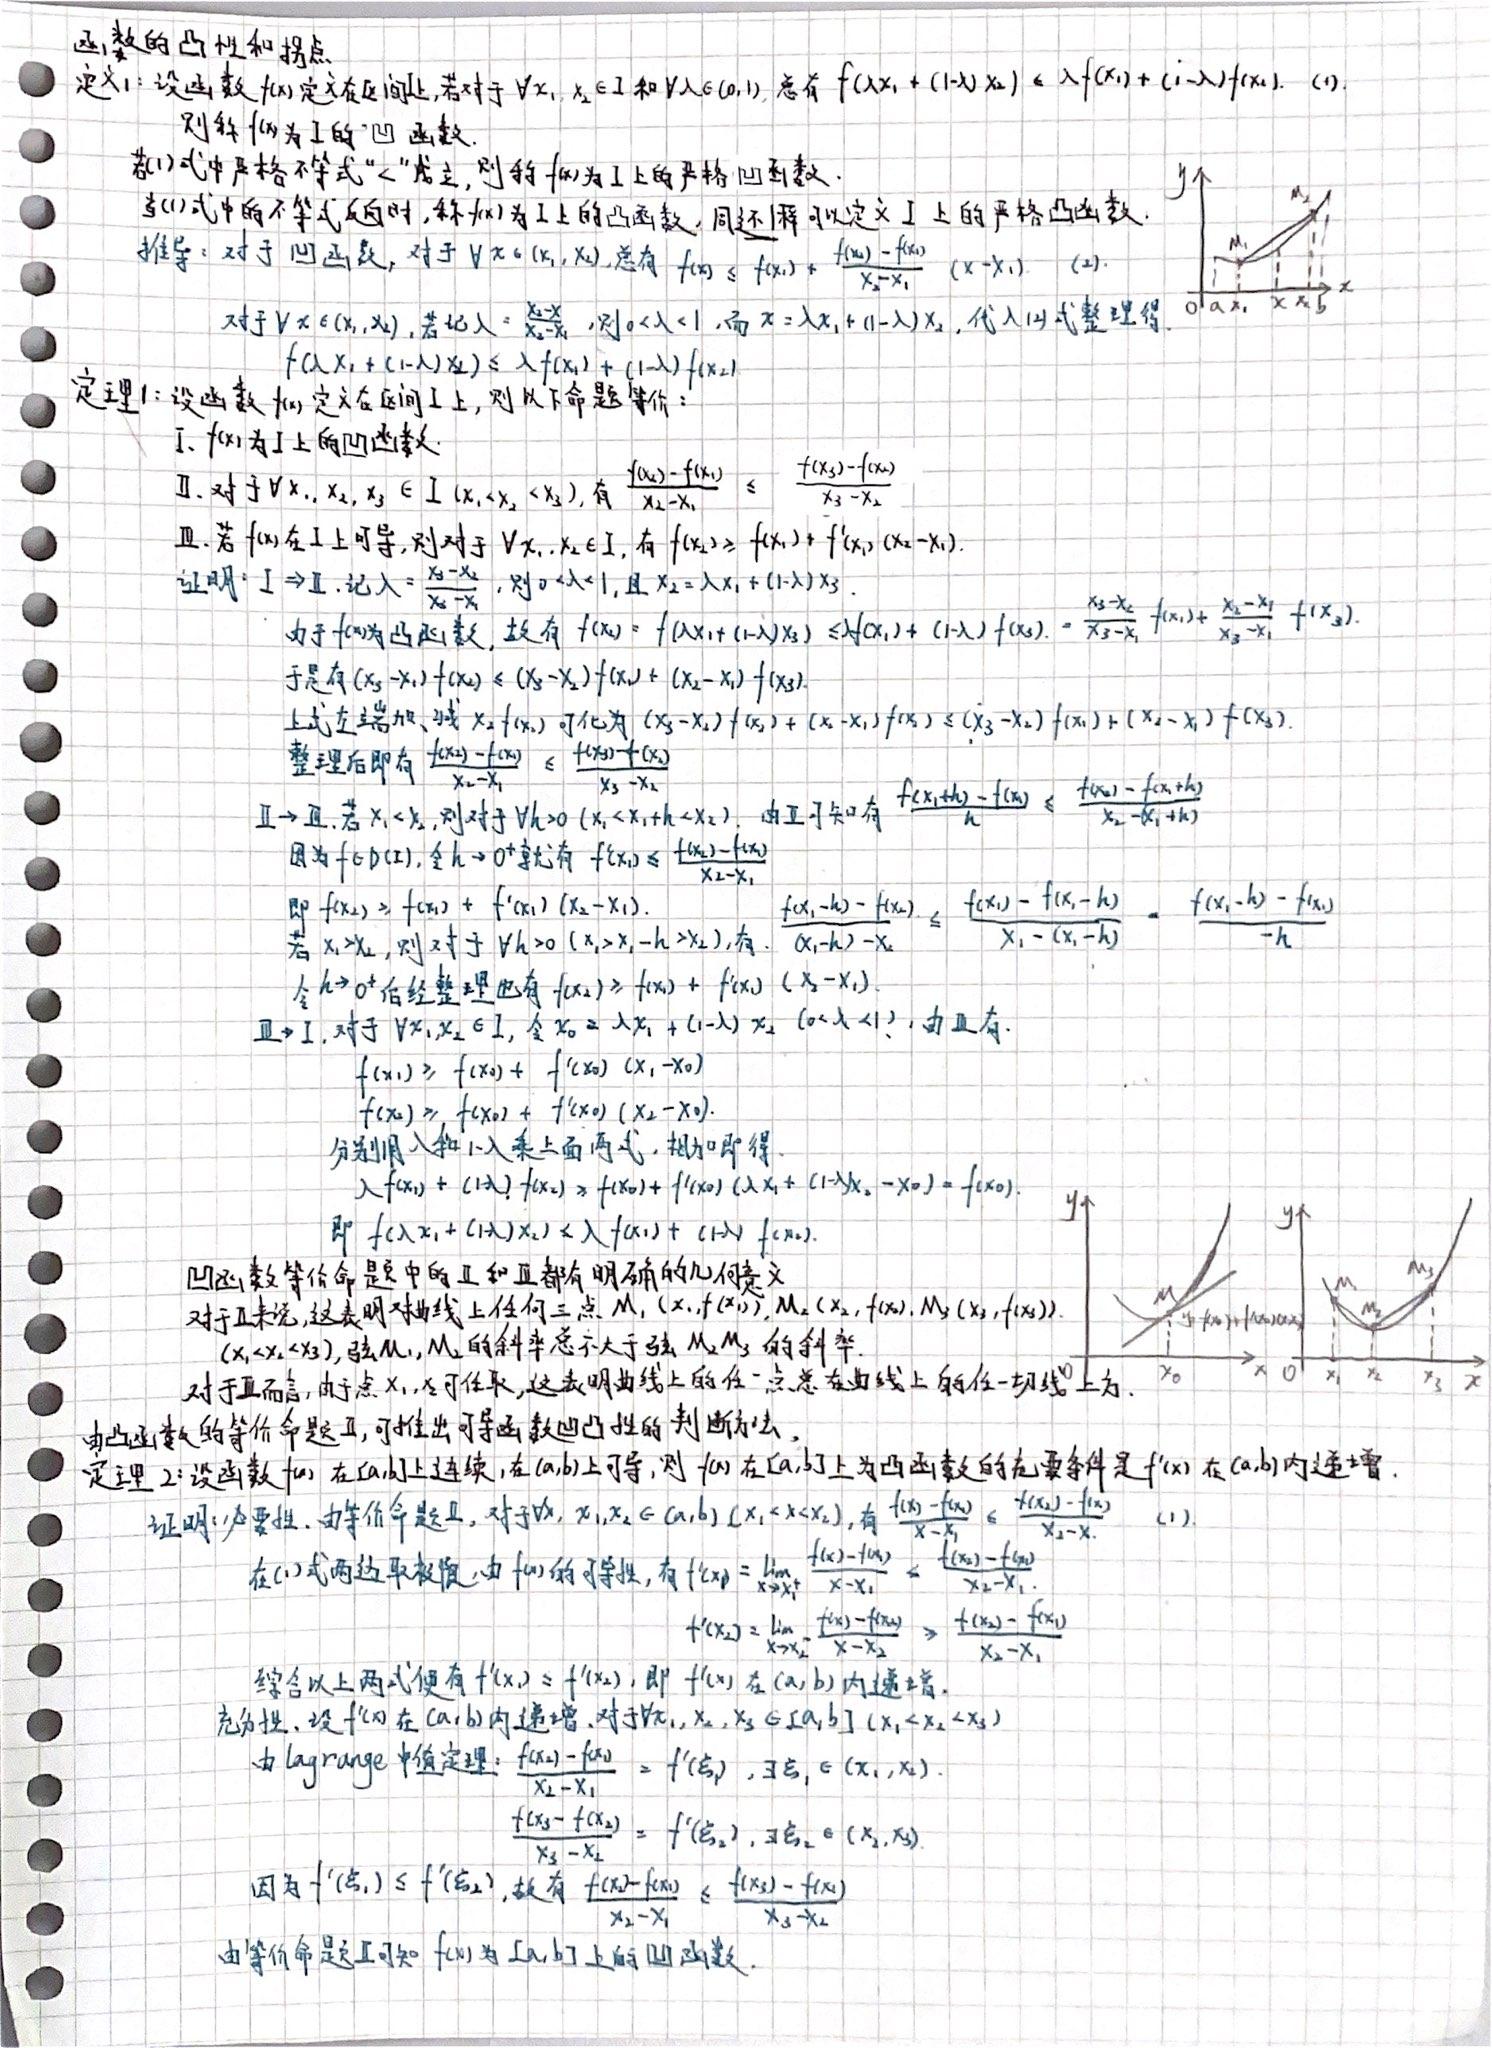 函数的凸性和拐点
定义1：设函数 f(x) 定义在区间I上,若对于 ∀x₁, x₂∈I 和 ∀λ∈(0,1), 总有 f(λx₁ + (1-λ) x₂) ≤ λf(x₁) + (1-λ)f(x₂). (1).
则称 f(x) 为 I 的 凹 函数.
若(1)式中严格不等式“<”成立, 则称 f(x) 为 I 上的严格凹函数.
当(1)式中的不等式反向时, 称 f(x) 为 I 上的凸函数, 同还可以定义 I 上的严格凸函数.
推导：对于 凹函数, 对于 ∀x∈(x₁, x₂), 总有 f(x) ≤ f(x₁) + \frac{f(x₂)-f(x₁)}{x₂-x₁} (x-x₁). (2).
y M₁ M₂ 0 a x₁ x x₂ b x
对于∀x∈(x₁, x₂), 若记 λ = \frac{x₂-x}{x₂-x₁}, 则 0<λ<1, 而 x = λx₁ + (1-λ)x₂, 代入(2)式整理得.
f(λx₁ + (1-λ)x₂) ≤ λf(x₁) + (1-λ)f(x₂)
定理1：设函数 f(x) 定义在区间 I 上, 则以下命题等价：
Ⅰ、f(x) 为 I 上的凹函数.
Ⅱ. 对于∀x₁, x₂, x₃ ∈ I (x₁<x₂<x₃), 有 \frac{f(x₂)-f(x₁)}{x₂-x₁} ≤ \frac{f(x₃)-f(x₂)}{x₃-x₂}
Ⅲ. 若 f(x) 在 I 上可导, 则对于 ∀x₁, x₂∈I, 有 f(x₂) ≥ f(x₁) + f'(x₁) (x₂-x₁).
证明：Ⅰ⇒Ⅱ. 记 λ = \frac{x₃-x₂}{x₃-x₁}, 则 0<λ<1, 且 x₂ = λx₁ + (1-λ)x₃.
由于f(x)为凸函数, 故有 f(x₂) = f(λx₁ + (1-λ)x₃) ≤ λf(x₁) + (1-λ) f(x₃). = \frac{x₃-x₂}{x₃-x₁} f(x₁) + \frac{x₂-x₁}{x₃-x₁} f(x₃).
于是有 (x₃-x₁) f(x₂) ≤ (x₃-x₂) f(x₁) + (x₂-x₁) f(x₃).
上式左端加、减 x₂f(x₂) 可化为 (x₃-x₂) f(x₂) + (x₂-x₁) f(x₂) ≤ (x₃-x₂) f(x₁) + (x₂-x₁) f(x₃).
整理后即有 \frac{f(x₂)-f(x₁)}{x₂-x₁} ≤ \frac{f(x₃)-f(x₂)}{x₃-x₂}
Ⅱ→Ⅲ. 若 x₁<x₂, 则对于 ∀h>0 (x₁<x₁+h<x₂). 由Ⅱ可知有 \frac{f(x₁+h)-f(x₁)}{h} ≤ \frac{f(x₂)-f(x₁+h)}{x₂-(x₁+h)}
因为 f∈D(I), 令 h→0⁺ 就有 f'(x₁) ≤ \frac{f(x₂)-f(x₁)}{x₂-x₁}
即 f(x₂) ≥ f(x₁) + f'(x₁) (x₂-x₁).
若 x₁>x₂, 则对于 ∀h>0 (x₁>x₁-h>x₂), 有. \frac{f(x₁-h)-f(x₂)}{(x₁-h)-x₂} ≤ \frac{f(x₁)-f(x₁-h)}{x₁-(x₁-h)} = \frac{f(x₁-h)-f(x₁)}{-h}
令 h→0⁺ 后经整理也有 f(x₂) ≥ f(x₁) + f'(x₁) (x₂-x₁).
Ⅲ→Ⅰ. 对于 ∀x₁,x₂∈I, 令 x₀ = λx₁ + (1-λ) x₂ (0<λ<1), 由Ⅲ有.
f(x₁) ≥ f(x₀) + f'(x₀) (x₁-x₀)
f(x₂) ≥ f(x₀) + f'(x₀) (x₂-x₀).
分别用 λ和 1-λ 乘上面两式, 相加即得.
λf(x₁) + (1-λ) f(x₂) ≥ f(x₀) + f'(x₀) (λx₁ + (1-λ)x₂ - x₀) = f(x₀).
即 f(λx₁ + (1-λ)x₂) ≤ λf(x₁) + (1-λ) f(x₂).
凹函数等价命题中的Ⅱ和Ⅲ都有明确的几何意义
对于Ⅱ来说, 这表明对曲线上任何三点 M₁(x₁, f(x₁)), M₂(x₂, f(x₂), M₃(x₃, f(x₃)).
(x₁<x₂<x₃), 弦M₁, M₂ 的斜率总不大于弦 M₂M₃ 的斜率.
对于Ⅲ而言, 由于点 x₁, x₂可任取, 这表明曲线上的任一点总在曲线上的任一切线上方.
y M 0 x₀ x
y M₁ M₂ M₃ 0 x₁ x₂ x₃ x
由凸函数的等价命题Ⅱ, 可推出可导函数凹凸性的判断方法,
定理2：设函数 f(x) 在[a,b]上连续, 在(a,b)上可导, 则 f(x) 在[a,b]上为凸函数的充要条件是 f'(x) 在 (a,b) 内递增.
证明：必要性. 由等价命题Ⅱ, 对于∀x, x₁,x₂∈(a,b) (x₁<x<x₂), 有 \frac{f(x)-f(x₁)}{x-x₁} ≤ \frac{f(x₂)-f(x)}{x₂-x}. (1).
在(1)式两边取极限, 由 f(x) 的可导性, 有 f'(x₁) = \lim_{x→x₁⁺} \frac{f(x)-f(x₁)}{x-x₁} ≤ \frac{f(x₂)-f(x₁)}{x₂-x₁}.
f'(x₂) = \lim_{x→x₂⁻} \frac{f(x)-f(x₂)}{x-x₂} ≥ \frac{f(x₂)-f(x₁)}{x₂-x₁}
综合以上两式便有 f'(x₁) ≤ f'(x₂), 即 f'(x) 在 (a,b) 内递增.
充分性. 设 f'(x) 在 (a,b) 内递增. 对于∀x₁, x₂, x₃∈[a,b] (x₁<x₂<x₃)
由 Lagrange 中值定理：\frac{f(x₂)-f(x₁)}{x₂-x₁} = f'(ξ₁), ∃ξ₁∈(x₁, x₂).
\frac{f(x₃-f(x₂)}{x₃-x₂} = f'(ξ₂), ∃ξ₂∈(x₂, x₃).
因为 f'(ξ₁) ≤ f'(ξ₂), 故有 \frac{f(x₂)-f(x₁)}{x₂-x₁} ≤ \frac{f(x₃)-f(x₂)}{x₃-x₂}
由等价命题Ⅱ可知 f(x) 为 [a,b] 上的凹函数.